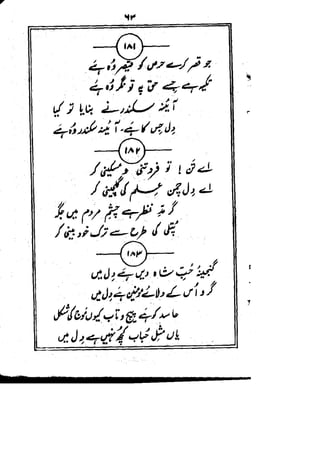 ۶۳
۱۸۱
جو قصر کرے حرص کو فقیر وہ ہے
تکیہ ہے جسے حق پہ تونگر وہ ہے
آئینہ سکندر نے بنایا تو کیا
دل جس کا ہے آئینہ سکندر وہ ہے
۱۸۲
اے تن ! تو فروتنی و مسکینی کر
اے دل چمن علم کی گلچینی کر
گر مدِ نظر ہے چشمِ مردم میں جگہ
پتلی کی طرح سے ترک خود بینی کر
۱۸۳
گنجینۂ حب شاہ دیں ہے دل میں
گرد اس کے ولائے مومنیں ہے دل میں
حاسد کرے پیچ و تاب کیوں موج کی شکل
یاں مثل حباب کچھ نہیں ہے دل میں